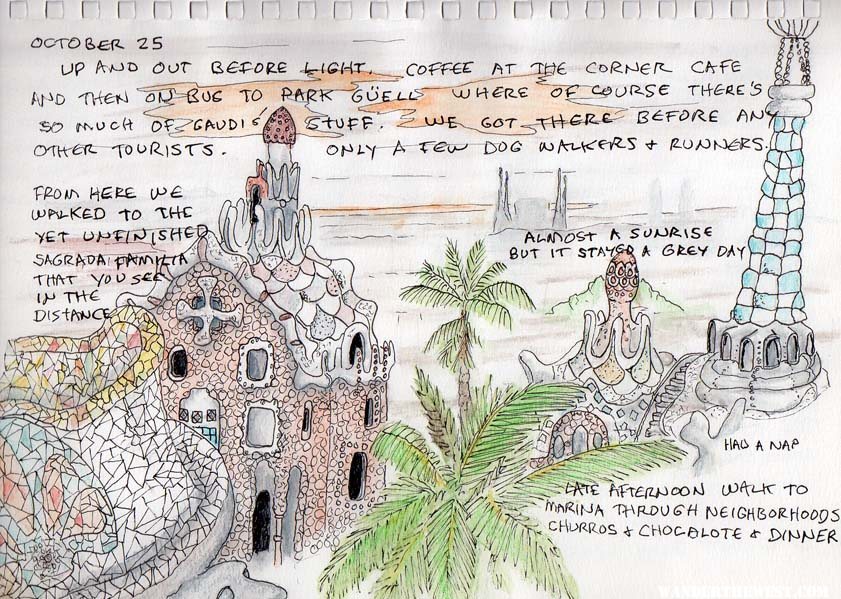 OCTOBER 25
UP AND OUT BEFORE LIGHT. COFFEE AT THE CORNER CAFE
AND THEN ON BUS TO PARK GÜELL WHERE OF COURSE THERE'S
SO MUCH OF GAUDIS' STUFF. WE GOT THERE BEFORE ANY
OTHER TOURISTS. ONLY A FEW DOG WALKERS + RUNNERS.
FROM HERE WE
WALKED TO THE
YET UNFINISHED
SAGRADA FAMILIA
THAT YOU SEE
IN THE
DISTANCE
ALMOST A SUNRISE
BUT IT STAYED A GREY DAY
HAD A NAP
LATE AFTERNOON WALK TO
MARINA THROUGH NEIGHBORHOODS
CHURROS + CHOCOLATE + DINNER
WANDERTHEWEST.COM